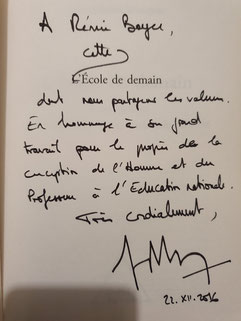 A Rémi Boyer,
cette
L'École de demain
dont nous partageons les valeurs.
En hommage à son grand
travail pour le progrès de la
conception de l'Homme et du
Professeur à l'Education nationale.
Très cordialement,
22.XII.2016